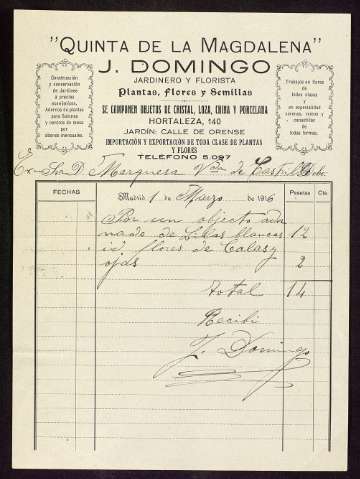 "QUINTA DE LA MAGDALENA"
J. DOMINGO
JARDINERO Y FLORISTA
Plantas, Flores y Semillas
SE COMPONEN OBJETOS DE CRISTAL, LOZA, CHINA Y PORCELANA
HORTALEZA, 140
JARDIN: CALLE DE ORENSE
IMPORTACIÓN Y EXPORTACIÓN DE TODA CLASE DE PLANTAS
Y FLORES
TELÉFONO 5.097
Construcción
y conservación
de Jardines
á precios
económicos.
Adornos de plantas
para Salones
y centros de mesa
por
abonos mensuales.
Trabajos en flores
de todas clases
y en especialidad
coronas, ramos y
canastillas
de
todas formas.
Sra D. Marquesa Vda de Castill
FECHAS
Madrid 1 de Marzo de 1916
Pesetas
Cts.
Por un objecto ador
nado de Lilas blancas 12
id flores de Calas y
ojas 2
total 14
Recibi
J. Domingo